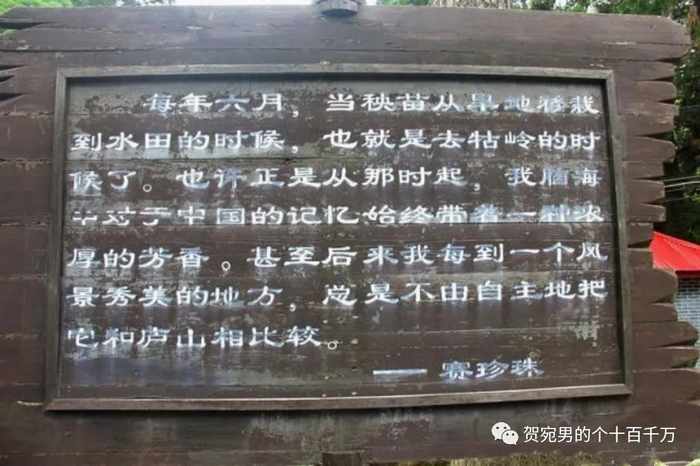 每年六月，当秧苗从旱地移栽
到水田的时候，也就是去牯岭的时
候了。也许正是从那时起，我脑海
中对于中国的记忆始终带着一种浓
厚的芳香。甚至后来我每到一个风
景秀美的地方，总是不由自主地把
它和庐山相比较。
——赛珍珠
贺宛男的个十百千万